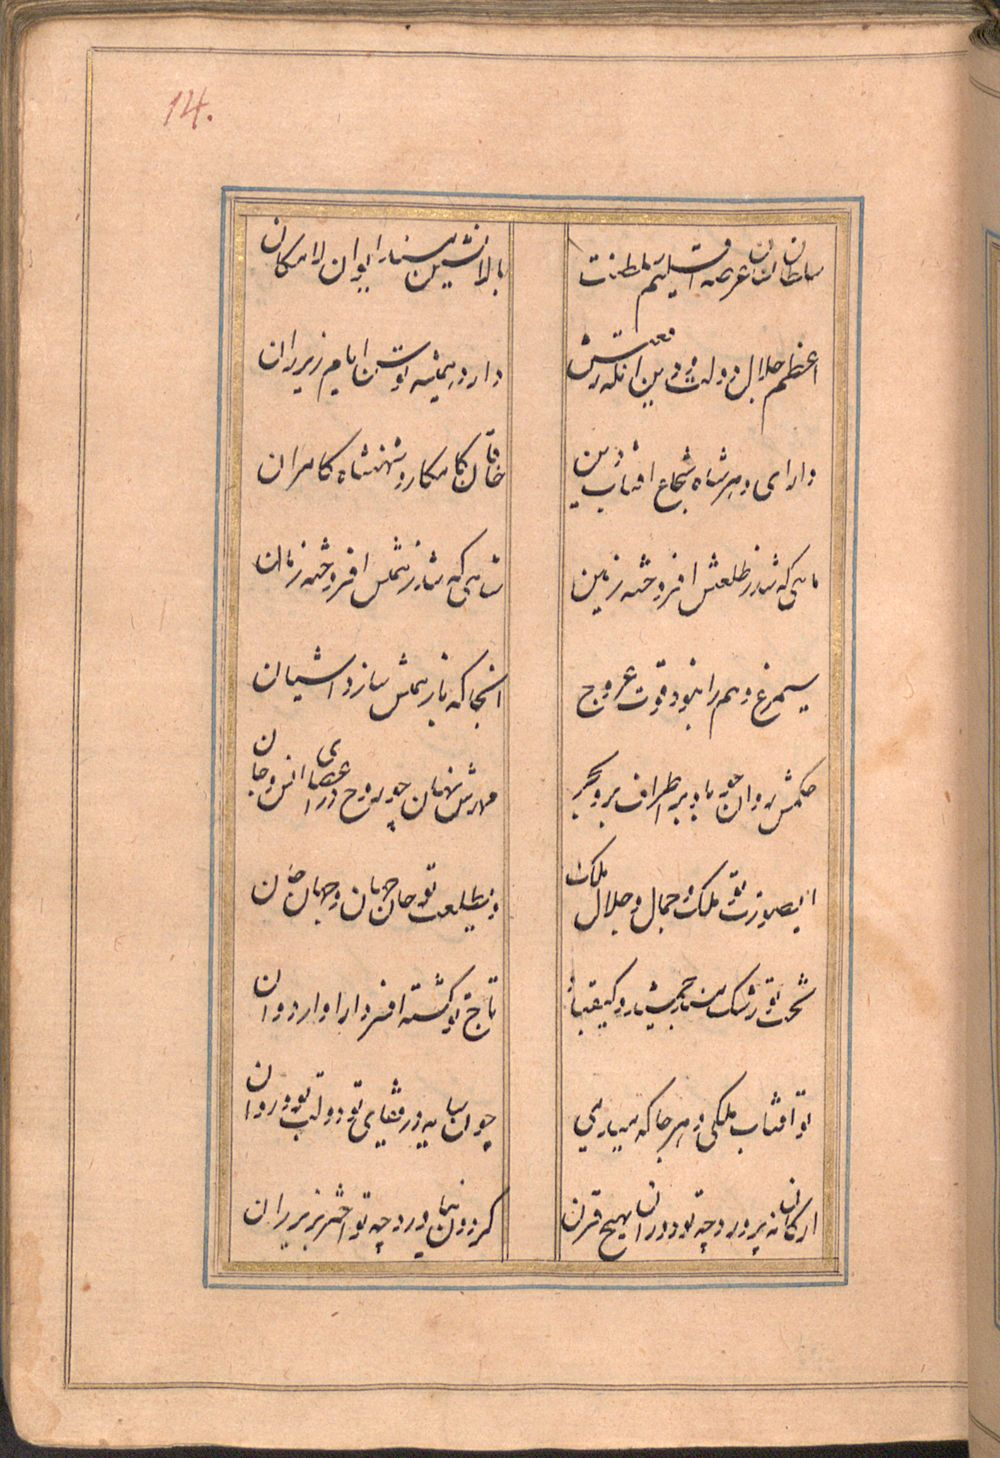 14.
سلطان نشان عرصه اقلیم سلطنت
بالانشین مسند ایوان لامکان
اعظم جلال دولت و دین انکه رفعتش
دارد همیشه توسن ایام زیر ران
دارای دهر شاه شجاع افتاب دین
خاقان کامکار و شهنشاه کامران
ماهی که شد ز طلعتش افروخته زمین
شاهی که شد ز همتش افروخته زمان
سیمرغ وهم را نبود قوت عروج
انجا که باز همتش سازد اشیان
حکمش روان چو باد بر اطراف بر و بحر
مهرش نهان چو روح در اعضای انس و جان
ای صورت تو ملک جمال و جلال ملک
وی طلعت تو جان جهان و جهان جان
تخت تو رشک مسند جمشید و کیقباد
تاج تو کشته افسر دارا و اردوان
تو افتاب ملکی و هر جا که میروی
چون سایه در قفای تو دولت بود روان
ارکان نپرورد چو تو دوران بهیچ قرن
کردون نیاورد چو تو اختر